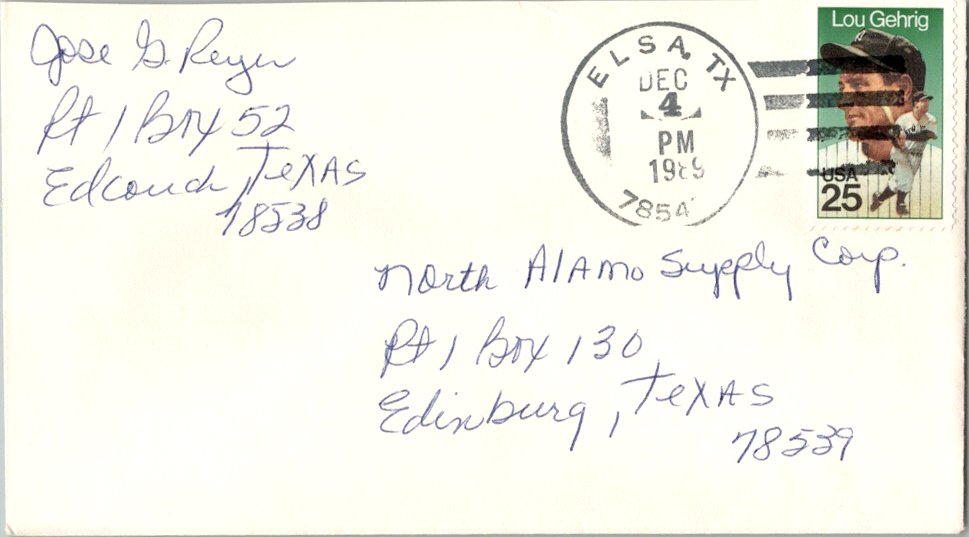 Jose G. Reyer
Rt 1 Box 52
Edcouch, Texas
78538
ELSA, TX
DEC
4
PM
1989
7854
Lou Gehrig
USA
25
North Alamo Supply Corp.
Rt 1 Box 130
Edinburg, Texas
78539